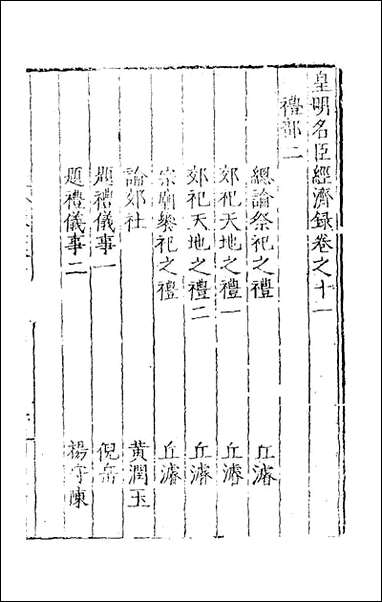 皇明名臣經濟録卷之十一
禮部二
總論祭祀之禮 丘濬
郊祀天地之禮一 丘濬
郊祀天地之禮二 丘濬
宗廟饗祀之禮 丘濬
論郊社 黃潤玉
題禮儀事一 倪岳
題禮儀事二 楊守陳